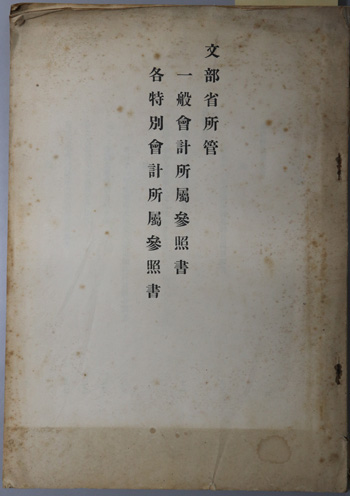 文部省所管
一般會計所屬參照書
各特別會計所屬參照書